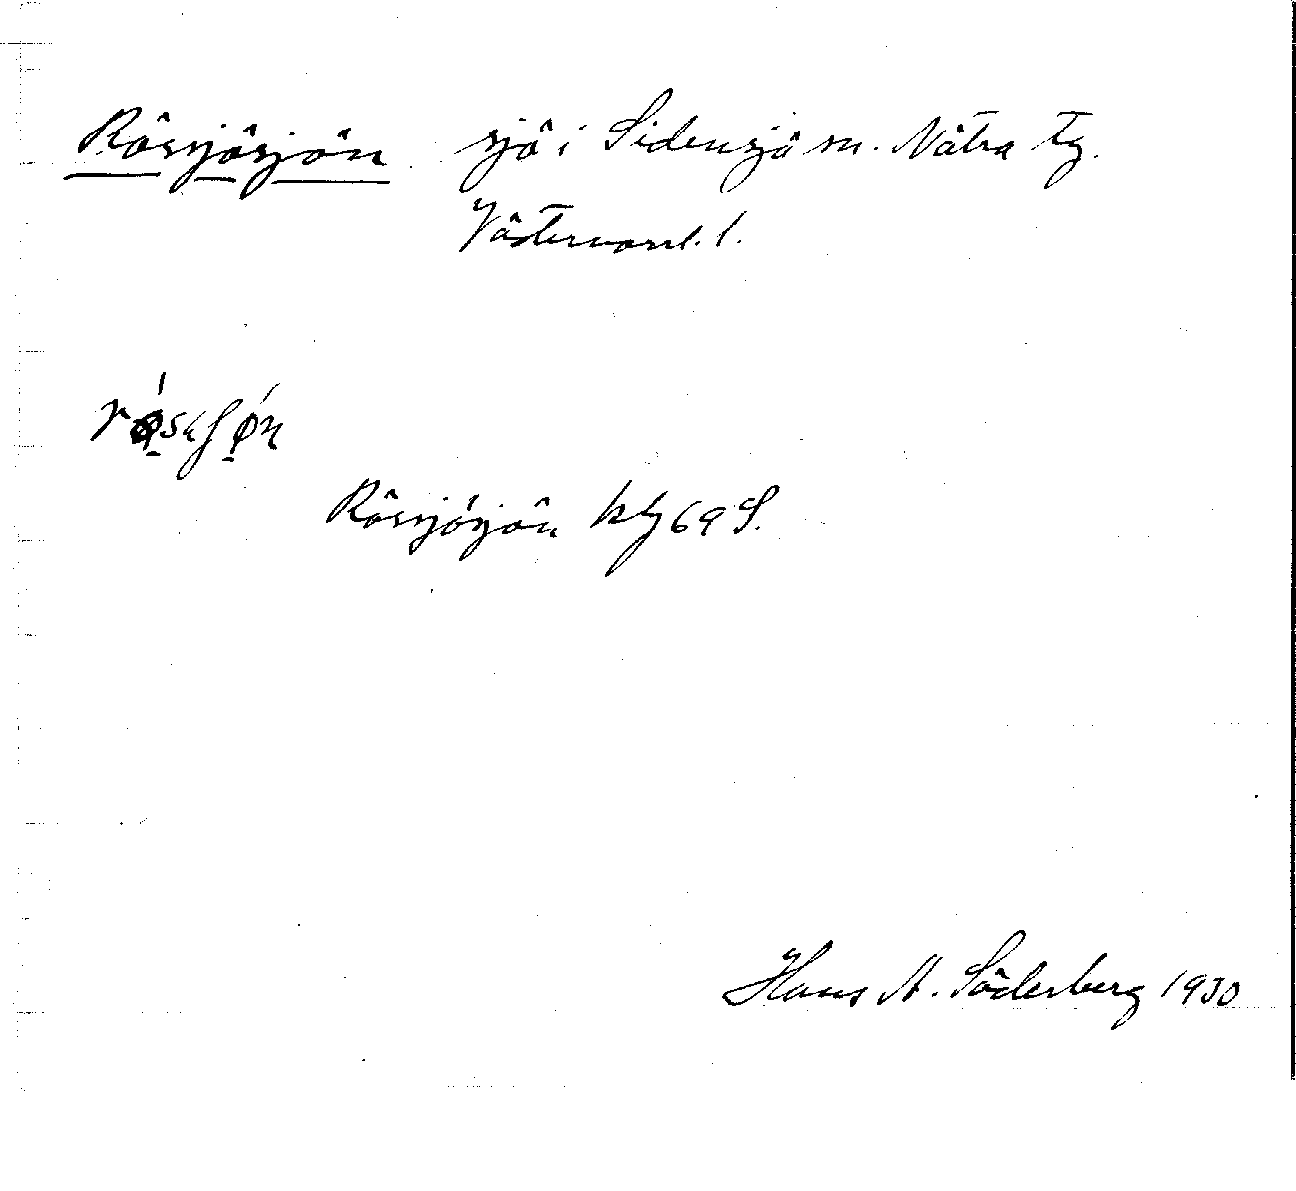 Rössjösjön sjö i Sidensjö sn. Nätra tg.
Västernorrl. l.
Rössjösjön kbl 69 S.
Hans A. Söderberg 1930